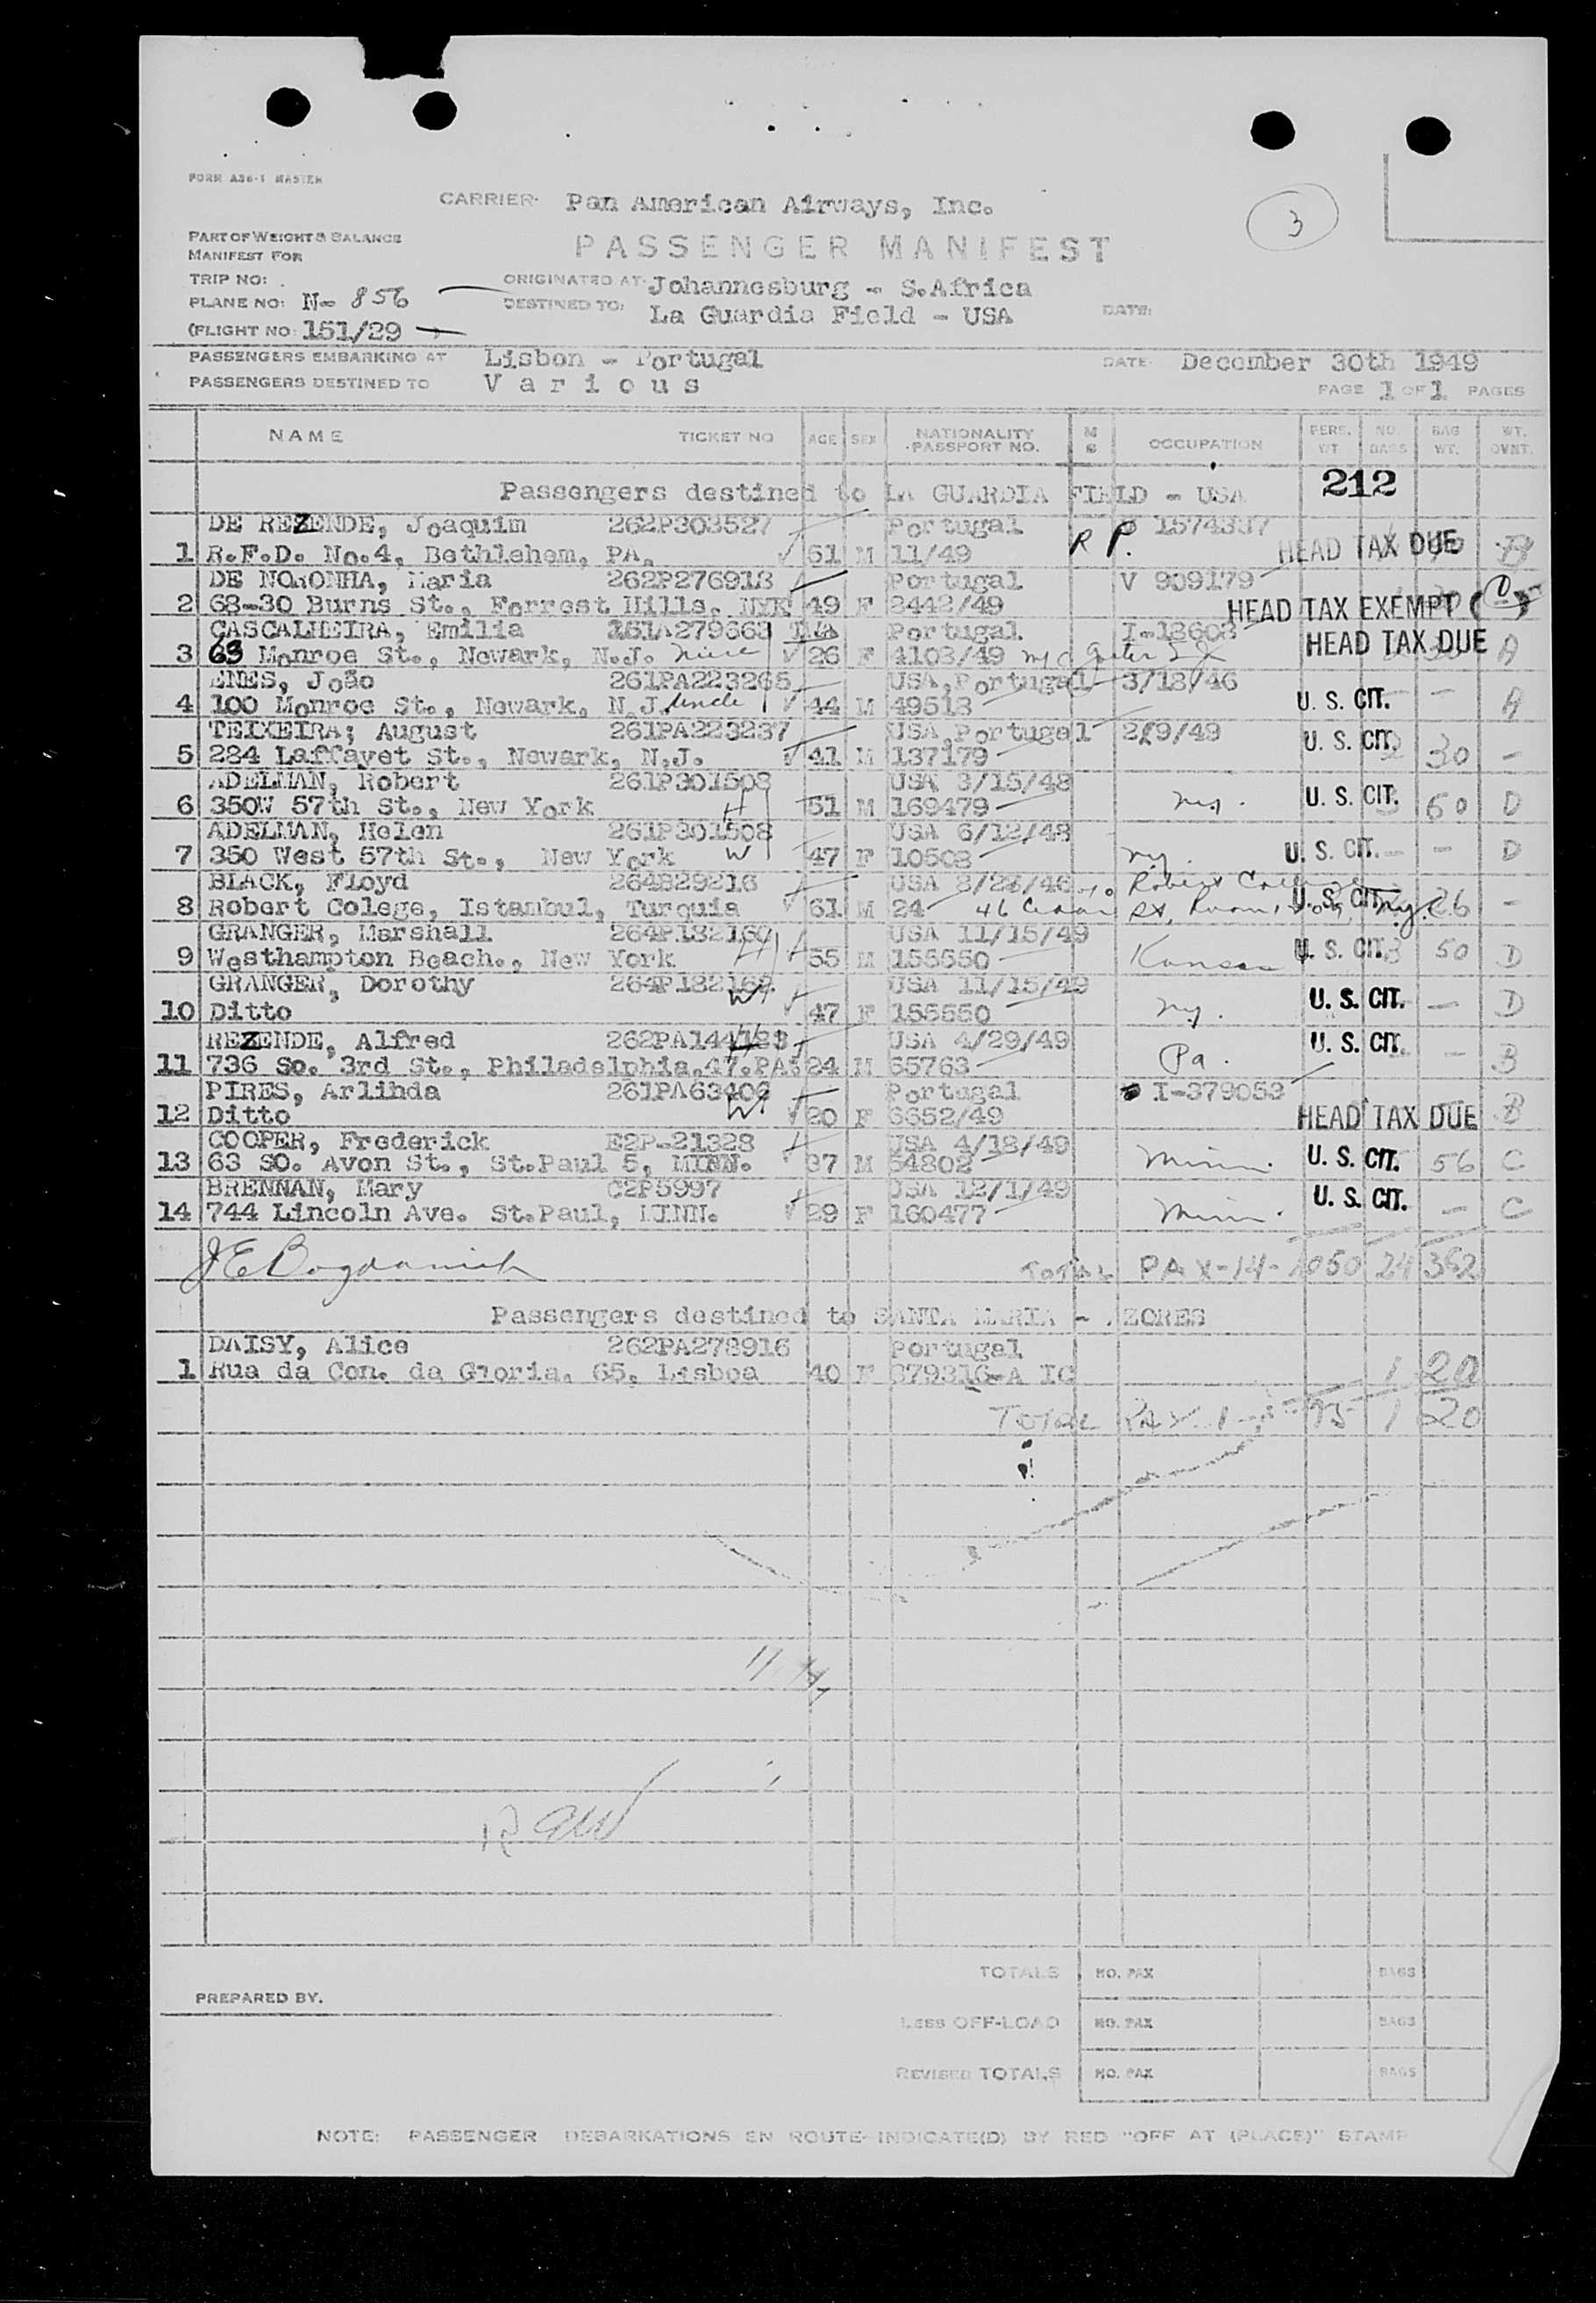 FORM A36-1 MASTER
CARRIER: Pan American Airways, Inc.
3
PART OF WEIGHT & BALANCE
MANIFEST FOR
PASSENGER MANIFEST
TRIP NO:
ORIGINATED AT: Johannesburg - S.Africa
PLANE NO: N- 856
DESTINED TO: La Guardia Field - USA DATE:
(FLIGHT NO: 151/29
PASSENGERS EMBARKING AT Lisbon - Portugal DATE: December 30th 1949
PASSENGERS DESTINED TO Various PAGE 1 OF 1 PAGES
NAME TICKET NO AGE SEX NATIONALITY PASSPORT NO. M S OCCUPATION PERS. WT NO. BAGS BAG WT. WT. OVNT.
Passengers destined to LA GUARDIA FIELD - USA 212
DE REZENDE, Joaquim 262P303527 Portugal 1574337
1 R.F.D. No.4, Bethlehem, PA. 61 M 11/49 R P. HEAD TAX DUE B
DE NORONHA, Maria 262P276913 Portugal V 909179
2 68-30 Burns St., Forrest Hills, NYK 49 F 2442/49 HEAD TAX EXEMPT
CASCALHEIRA, Emilia 151A279663 Portugal I-18608
3 63 Monroe St., Newark, N.J. niece 26 F 4103/49 HEAD TAX DUE A
ENES, João 261PA223265 USA,Portugal 3/13/46
4 100 Monroe St., Newark, N.J. uncle 44 M 49513 U. S. CIT. - A
TEIXEIRA; August 261PA223237 USA,Portugal 2/9/49
5 284 Laffayet St., Newark, N.J. 41 M 137179 U. S. CIT. 30 -
ADELMAN, Robert 261P301508 USA 3/15/48
6 350W 57th St., New York H 51 M 169479 ny. U. S. CIT. 60 D
ADELMAN, Helen 261P301508 USA 6/12/48
7 350 West 57th St., New York W 47 F 10508 ny. U. S. CIT. - - D
BLACK, Floyd 264829216 USA Robert College
8 Robert Colege, Istambul, Turquia 61 M 24 46 Cedar U. S. CIT. ny. 26 -
GRANGER, Marshall 264P182160 USA 11/15/49
9 Westhampton Beach., New York H 55 M 155550 Kansas U. S. CIT. 3 50 D
GRANGER, Dorothy 264P182162 USA 11/15/49
10 Ditto W 47 F 155550 ny. U. S. CIT. - D
REZENDE, Alfred 262PA144123 USA 4/29/49
11 736 So. 3rd St., Philadelphia.47.PA. 24 M 65763 Pa. U. S. CIT. - B
PIRES, Arlinda 261PA63406 Portugal I-379053
12 Ditto W 20 F 6652/49 HEAD TAX DUE B
COOPER, Frederick E2P-21328 USA 4/18/49
13 63 SO. Avon St., St.Paul 5, MINN. 37 M 54802 Minn. U. S. CIT. 56 C
BRENNAN, Mary C2P5997 USA 12/1/49
14 744 Lincoln Ave. St.Paul, MINN. 29 F 160477 Minn. U. S. CIT. - C
J E Bogdanich TOTAL PAX-14- 24 352
Passengers destined to SANTA MARIA - AZORES
DAISY, Alice 262PA278916 Portugal
1 Rua da Con. da Gloria, 65, Lisboa 40 F 879316-A IC 1 20
TOTAL PAX. 1 95 1 20
TOTALS NO. PAX BAGS
PREPARED BY.
LESS OFF-LOAD NO. PAX BAGS
REVISED TOTALS NO. PAX BAGS
NOTE: PASSENGER DEBARKATIONS EN ROUTE-INDICATE(D) BY RED "OFF AT (PLACE)" STAMP